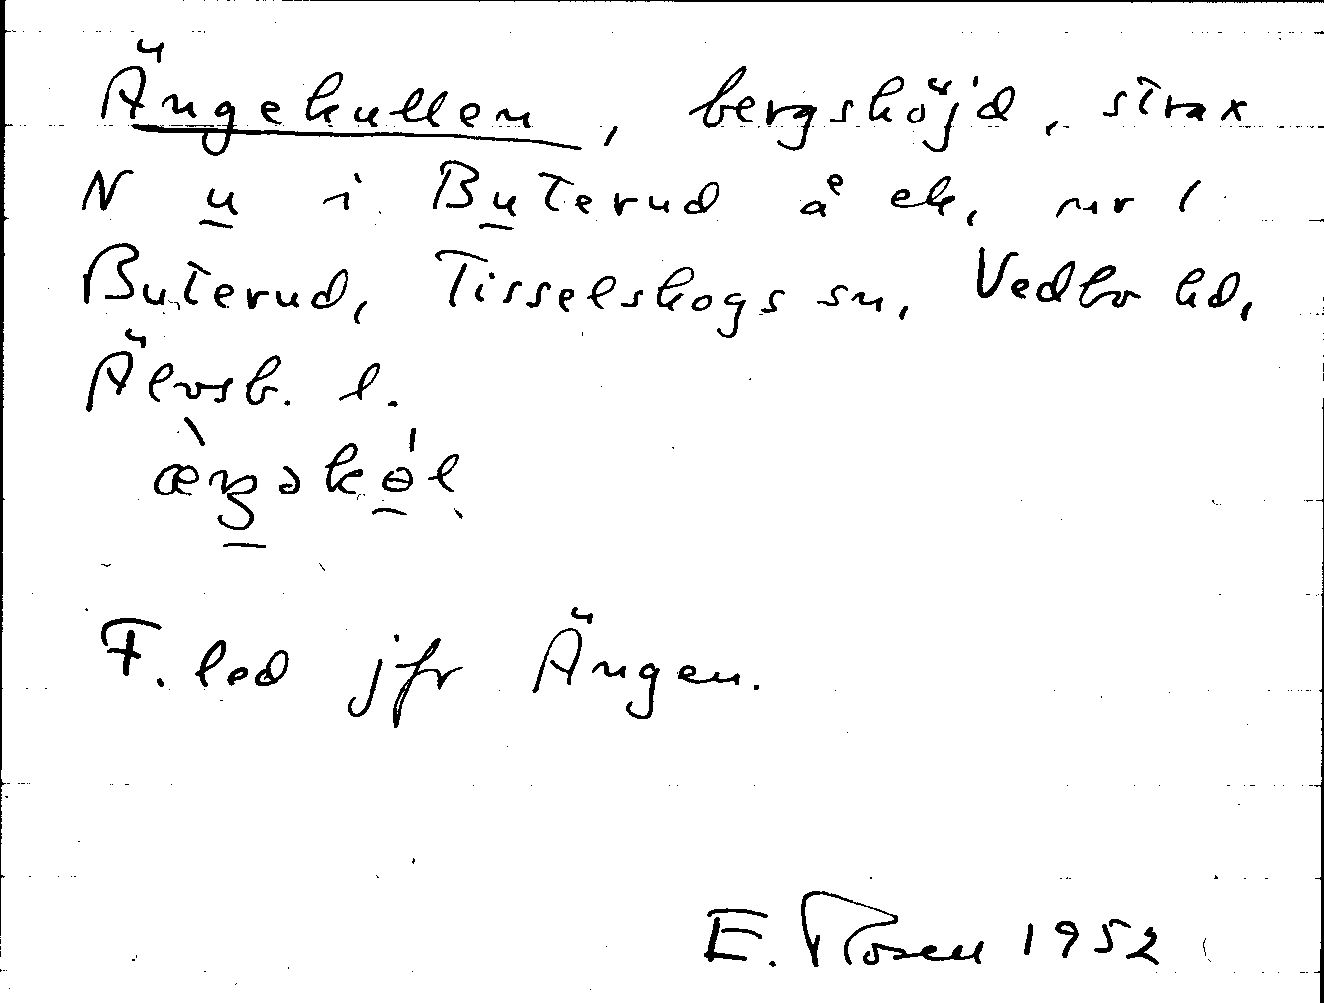 Ängekullen, bergshöjd, strax
N u i Buterud å ek, nr 1
Buterud, Tisselskogs sn, Vedbo hd,
Älvsb. l.
F. led jfr Ängen.
E. Rosen 1952